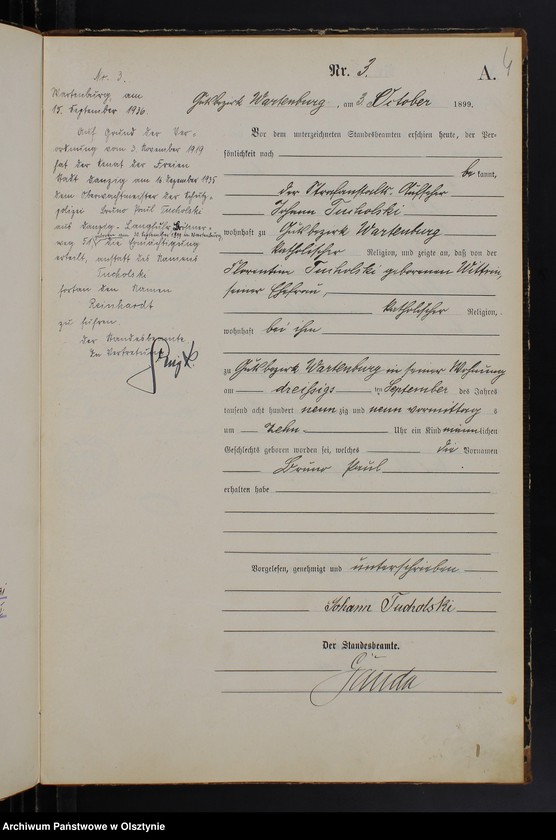 4
Nr. 3. A.
Gutsbezirk Wartenburg, am 3. October 1899.
Vor dem unterzeichneten Standesbeamten erschien heute, der Per-
sönlichkeit nach
be kannt,
der Strafanstalts-Aufseher
Johann Tucholski
wohnhaft zu Gutsbezirk Wartenburg
katholischer Religion, und zeigte an, daß von der
Florentine Tucholski geborenen
seiner Ehefrau,
katholischer Religion,
wohnhaft bei ihm
zu Gutsbezirk Wartenburg in seiner Wohnung
am dreissigs ten September des Jahres
tausend acht hundert neun zig und neun vormittag s
um zehn Uhr ein Kind männlichen
Geschlechts geboren worden sei, welches die Vornamen
Bruno Paul
erhalten habe
Vorgelesen, genehmigt und unterschrieben
Johann Tucholski
Der Standesbeamte.
Nr. 3.
Wartenburg, am
15. September 1936.
Auf Grund der Ver-
ordnung vom 3. November 1919
hat der Senat der Freien
Stadt Danzig am 16. Dezember 1935
dem Oberwachtmeister der Schutz-
polizei Bruno Paul Tucholski
aus Danzig-Langfuhr
weg die Ermächtigung
erteilt, anstatt des Namens
Tucholski
fortan den Namen
Reinhardt
zu führen.
Der Standesbeamte
In Vertretung
1
Archiwum Państwowe w Olsztynie